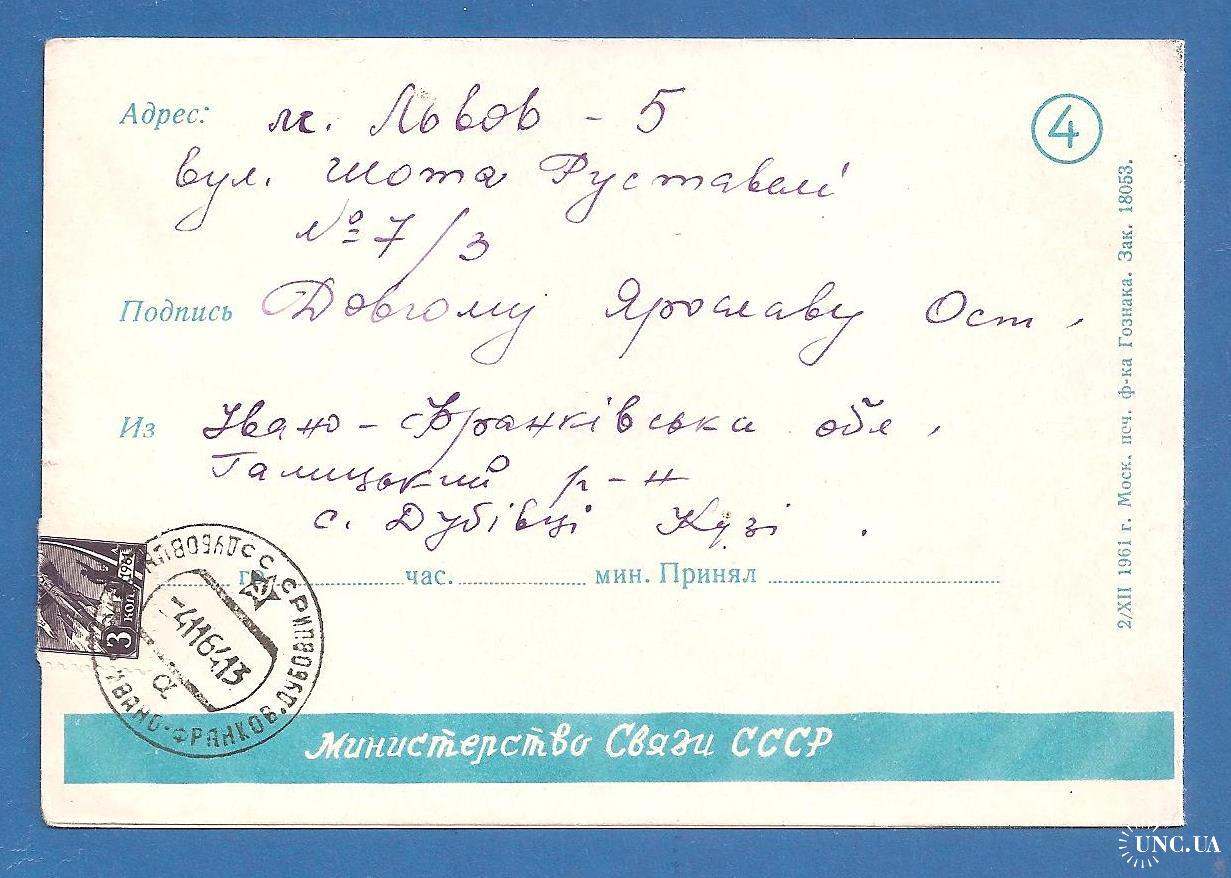 Адрес: м. Львов - 5
4
вул. Шота Руставелі
№ 7/3
Подпись Довгому Ярославу Ост.
Из Івано-Франківська обл.
Галицький р-н
с. Дубівці Кузі.
час. мин. Принял
1961
3 коп.
-41164.13
а
ИВАНО-ФРАНКОВ.
Министерство Связи СССР
2/XII 1961 г. Моск. печ. ф-ка Гознака. Зак. 18053.
UNC.UA